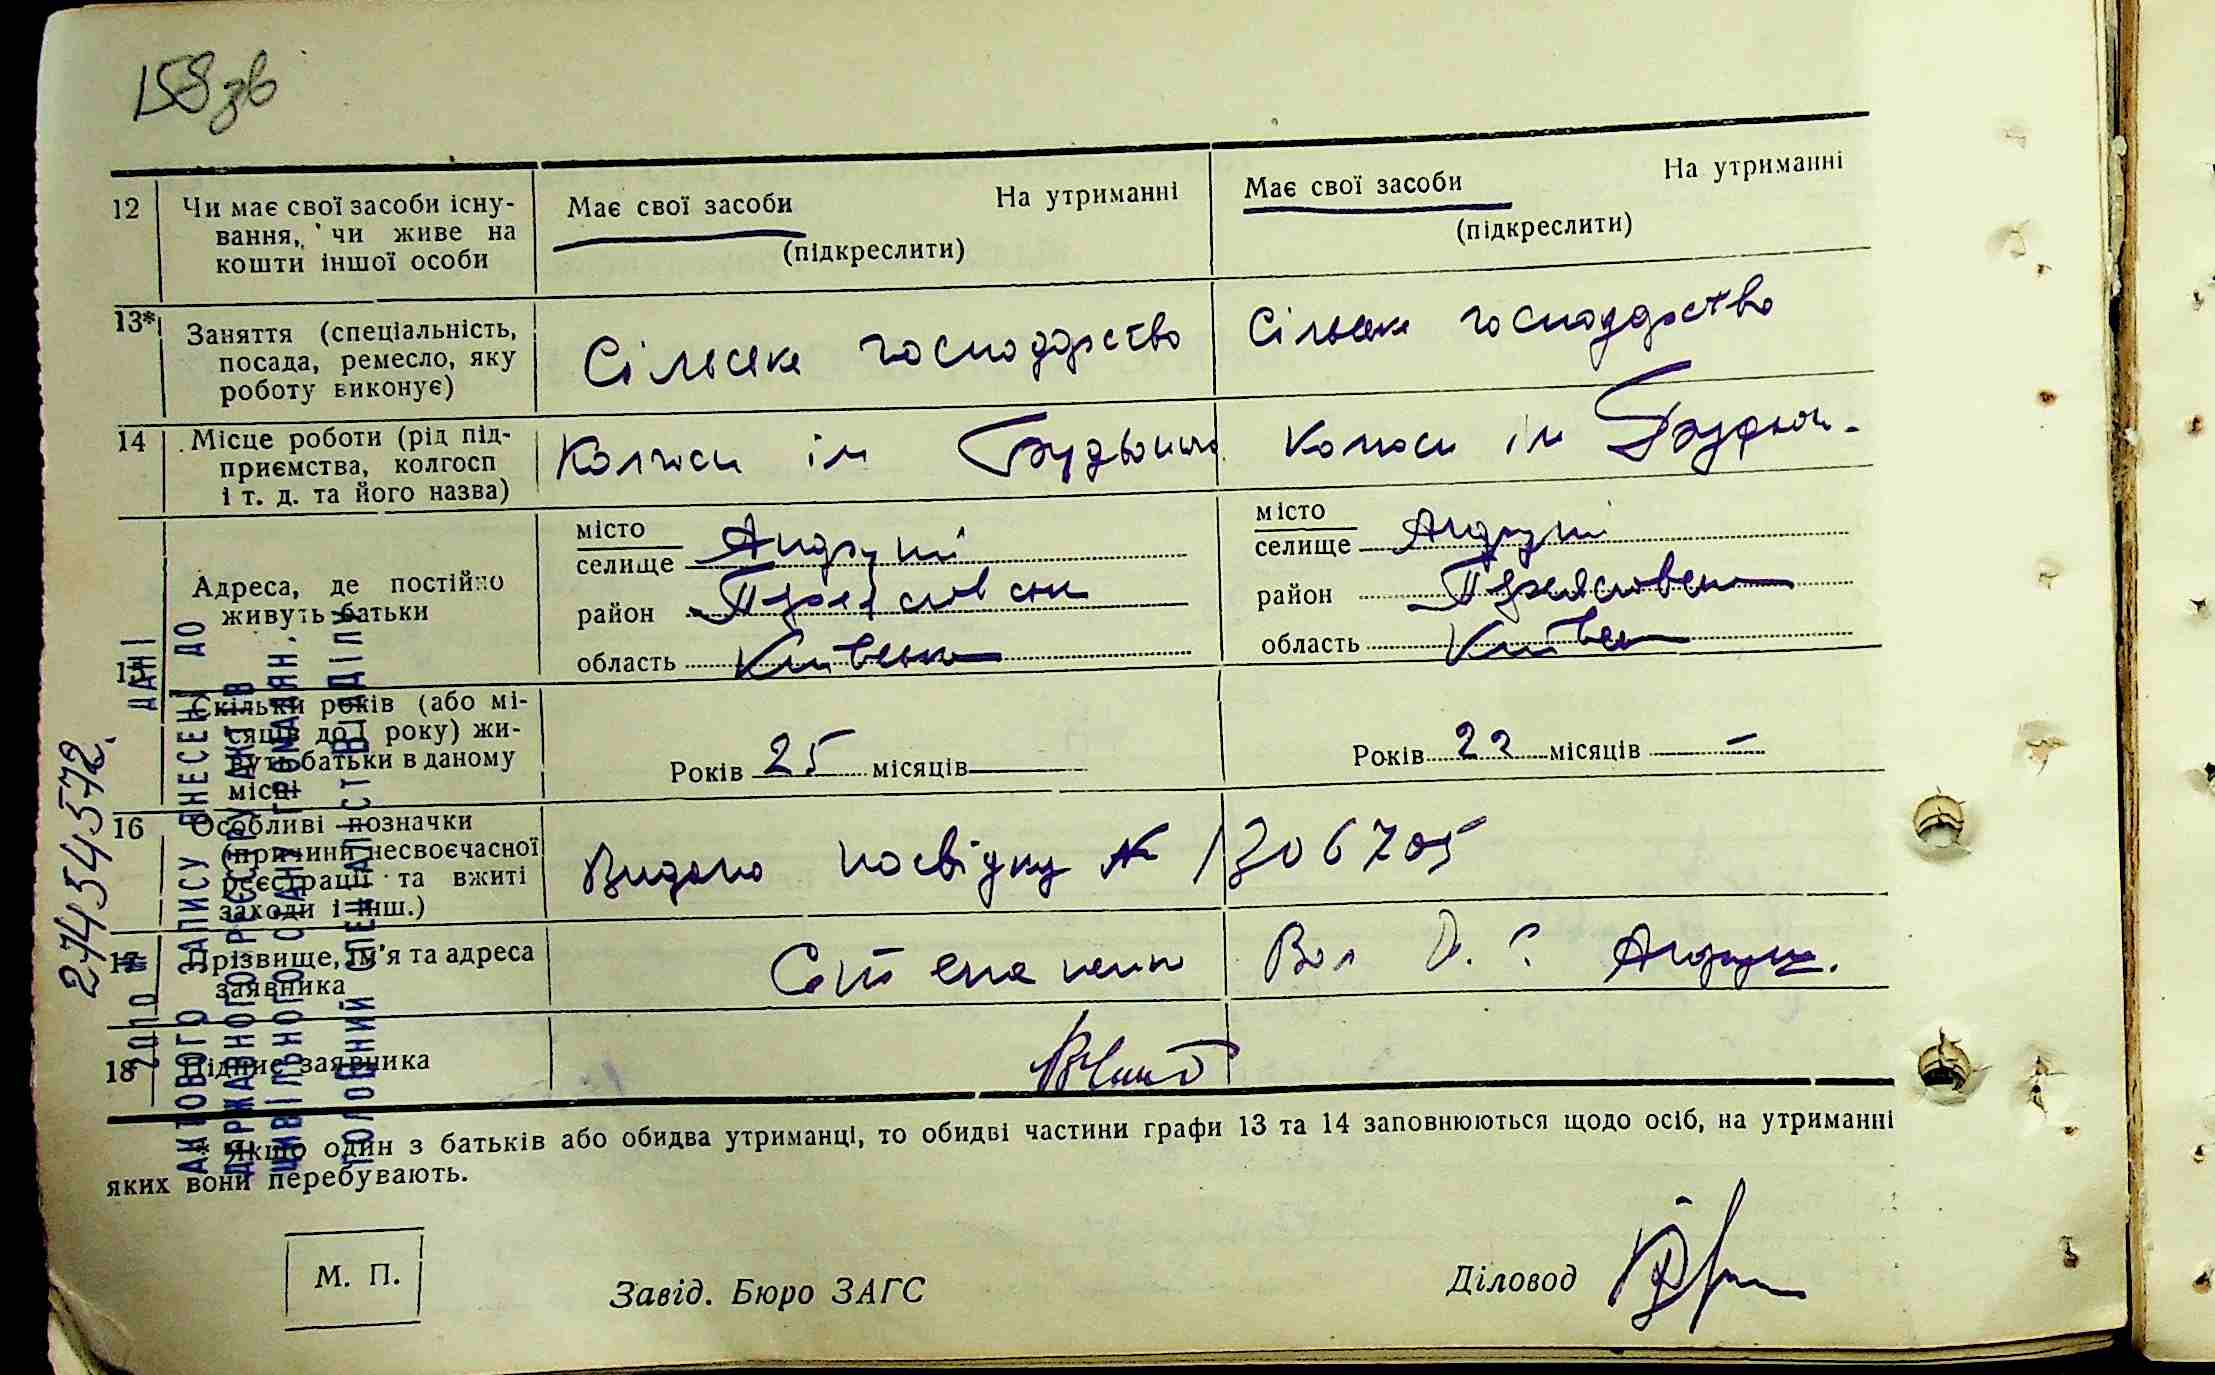 158зв
12 Чи має свої засоби існу- Має свої засоби На утриманні Має свої засоби На утриманні
вання, чи живе на (підкреслити) (підкреслити)
кошти іншої особи
13* Заняття (спеціальність, Сільське господарство Сільське господарство
посада, ремесло, яку
роботу виконує)
14 Місце роботи (рід під- Колгосп ім Будьоного Колгосп ім
приємства, колгосп
і т. д. та його назва)
15 Адреса, де постійно місто місто
живуть батьки селище Андруші селище Андруші
район Переяславськ район Переяславськ
область Київськ область Київськ
Скільки років (або мі-
сяців до 1 року) жи-
вуть батьки в даному Років 25 місяців — Років 22 місяців —
місці
16 Особливі позначки
(причини несвоєчасної Видано посвідку № 1306705
реєстрації та вжиті
заходи і інш.)
17 Прізвище, ім'я та адреса Степаненко Андруші.
заявника
18 Підпис заявника
* Якщо один з батьків або обидва утриманці, то обидві частини графи 13 та 14 заповнюються щодо осіб, на утриманні
яких вони перебувають.
М. П. Завід. Бюро ЗАГС Діловод
2010 ДАНІ
АКТОВОГО ЗАПИСУ ВНЕСЕНІ ДО
ДЕРЖАВНОГО РЕЄСТРУ АКТІВ
ЦИВІЛЬНОГО СТАНУ ГРОМАДЯН.
ГОЛОВНИЙ СПЕЦІАЛІСТ ВІДДІЛУ
27454572.